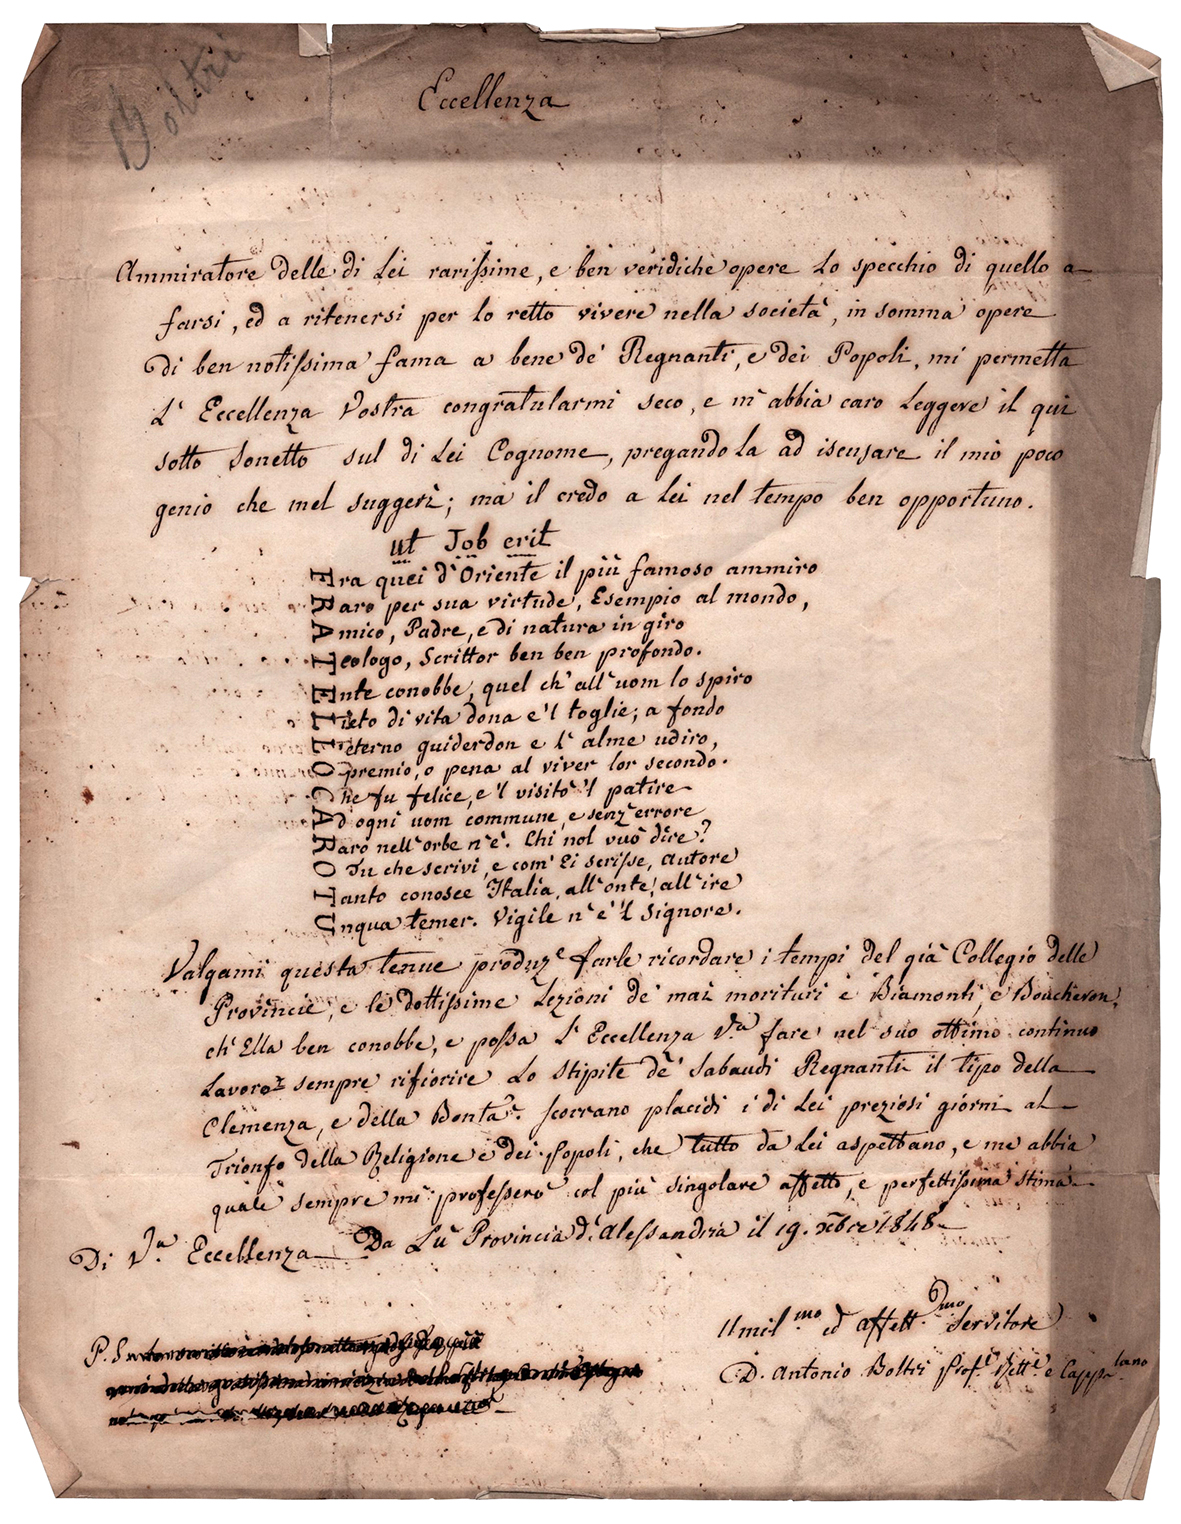 Boltri
Eccellenza
Ammiratore delle di Lei rarissime, e ben veridiche opere lo specchio di quello a
farsi, ed a ritenersi per lo retto vivere nella società, in somma opere
di ben notissima fama a bene de' Regnanti, e dei Popoli, mi permetta
L' Eccellenza Vostra congratularmi seco, e m'abbia caro leggere il qui
sotto Sonetto sul di Lei Cognome, pregandola ad iscusare il mio poco
genio che mel suggerì; ma il credo a Lei nel tempo ben opportuno.
ut Job erit
Era quei d'Oriente il più famoso ammiro
Raro per sua virtude, Esempio al mondo,
Amico, Padre, e di natura in giro
Teologo, Scrittor ben ben profondo.
Ente conobbe, quel ch' all'uom lo spiro
Lieto di vita dona e'l toglie; a fondo
L'eterno guiderdon e l' alme udiro,
O premio, o pena al viver lor secondo.
Che fu felice, e'l visitò 'l patire
Ad ogni uom commune, e senz'errore
Raro nell'orbe n'è. Chi nol vuò dire?
O Tu che scrivi, e com' Ei scrisse, autore
Tanto conosce Italia, all'onte, all'ire
Unqua temer. Vigile n'è 'l Signore.
Valgami questa tenue produz.e farle ricordare i tempi del già Collegio delle
Provincie, e le dottissime Lezioni de' mai morituri e Biamonti, e Boucheron,
ch' Ella ben conobbe, e possa L' Eccellenza V.a fare nel suo ottimo continuo
Lavoro sempre rifiorire lo stipite de' Sabaudi Regnanti il tipo della
Clemenza, e della Bontà. Scorrano placidi i di Lei preziosi giorni al
Trionfo della Religione e dei Popoli, che tutto da Lei aspettano, e me abbia
quale sempre mi professerò col più singolare affetto, e perfettissima stima
Di V.a Eccellenza Da Lù Provincia d'Alessandria il 19. Xbre 1848
Umil.mo ed affett.mo Servitore
P. S.
D. Antonio Boltri Prof.e Rett.e e Capp.lano